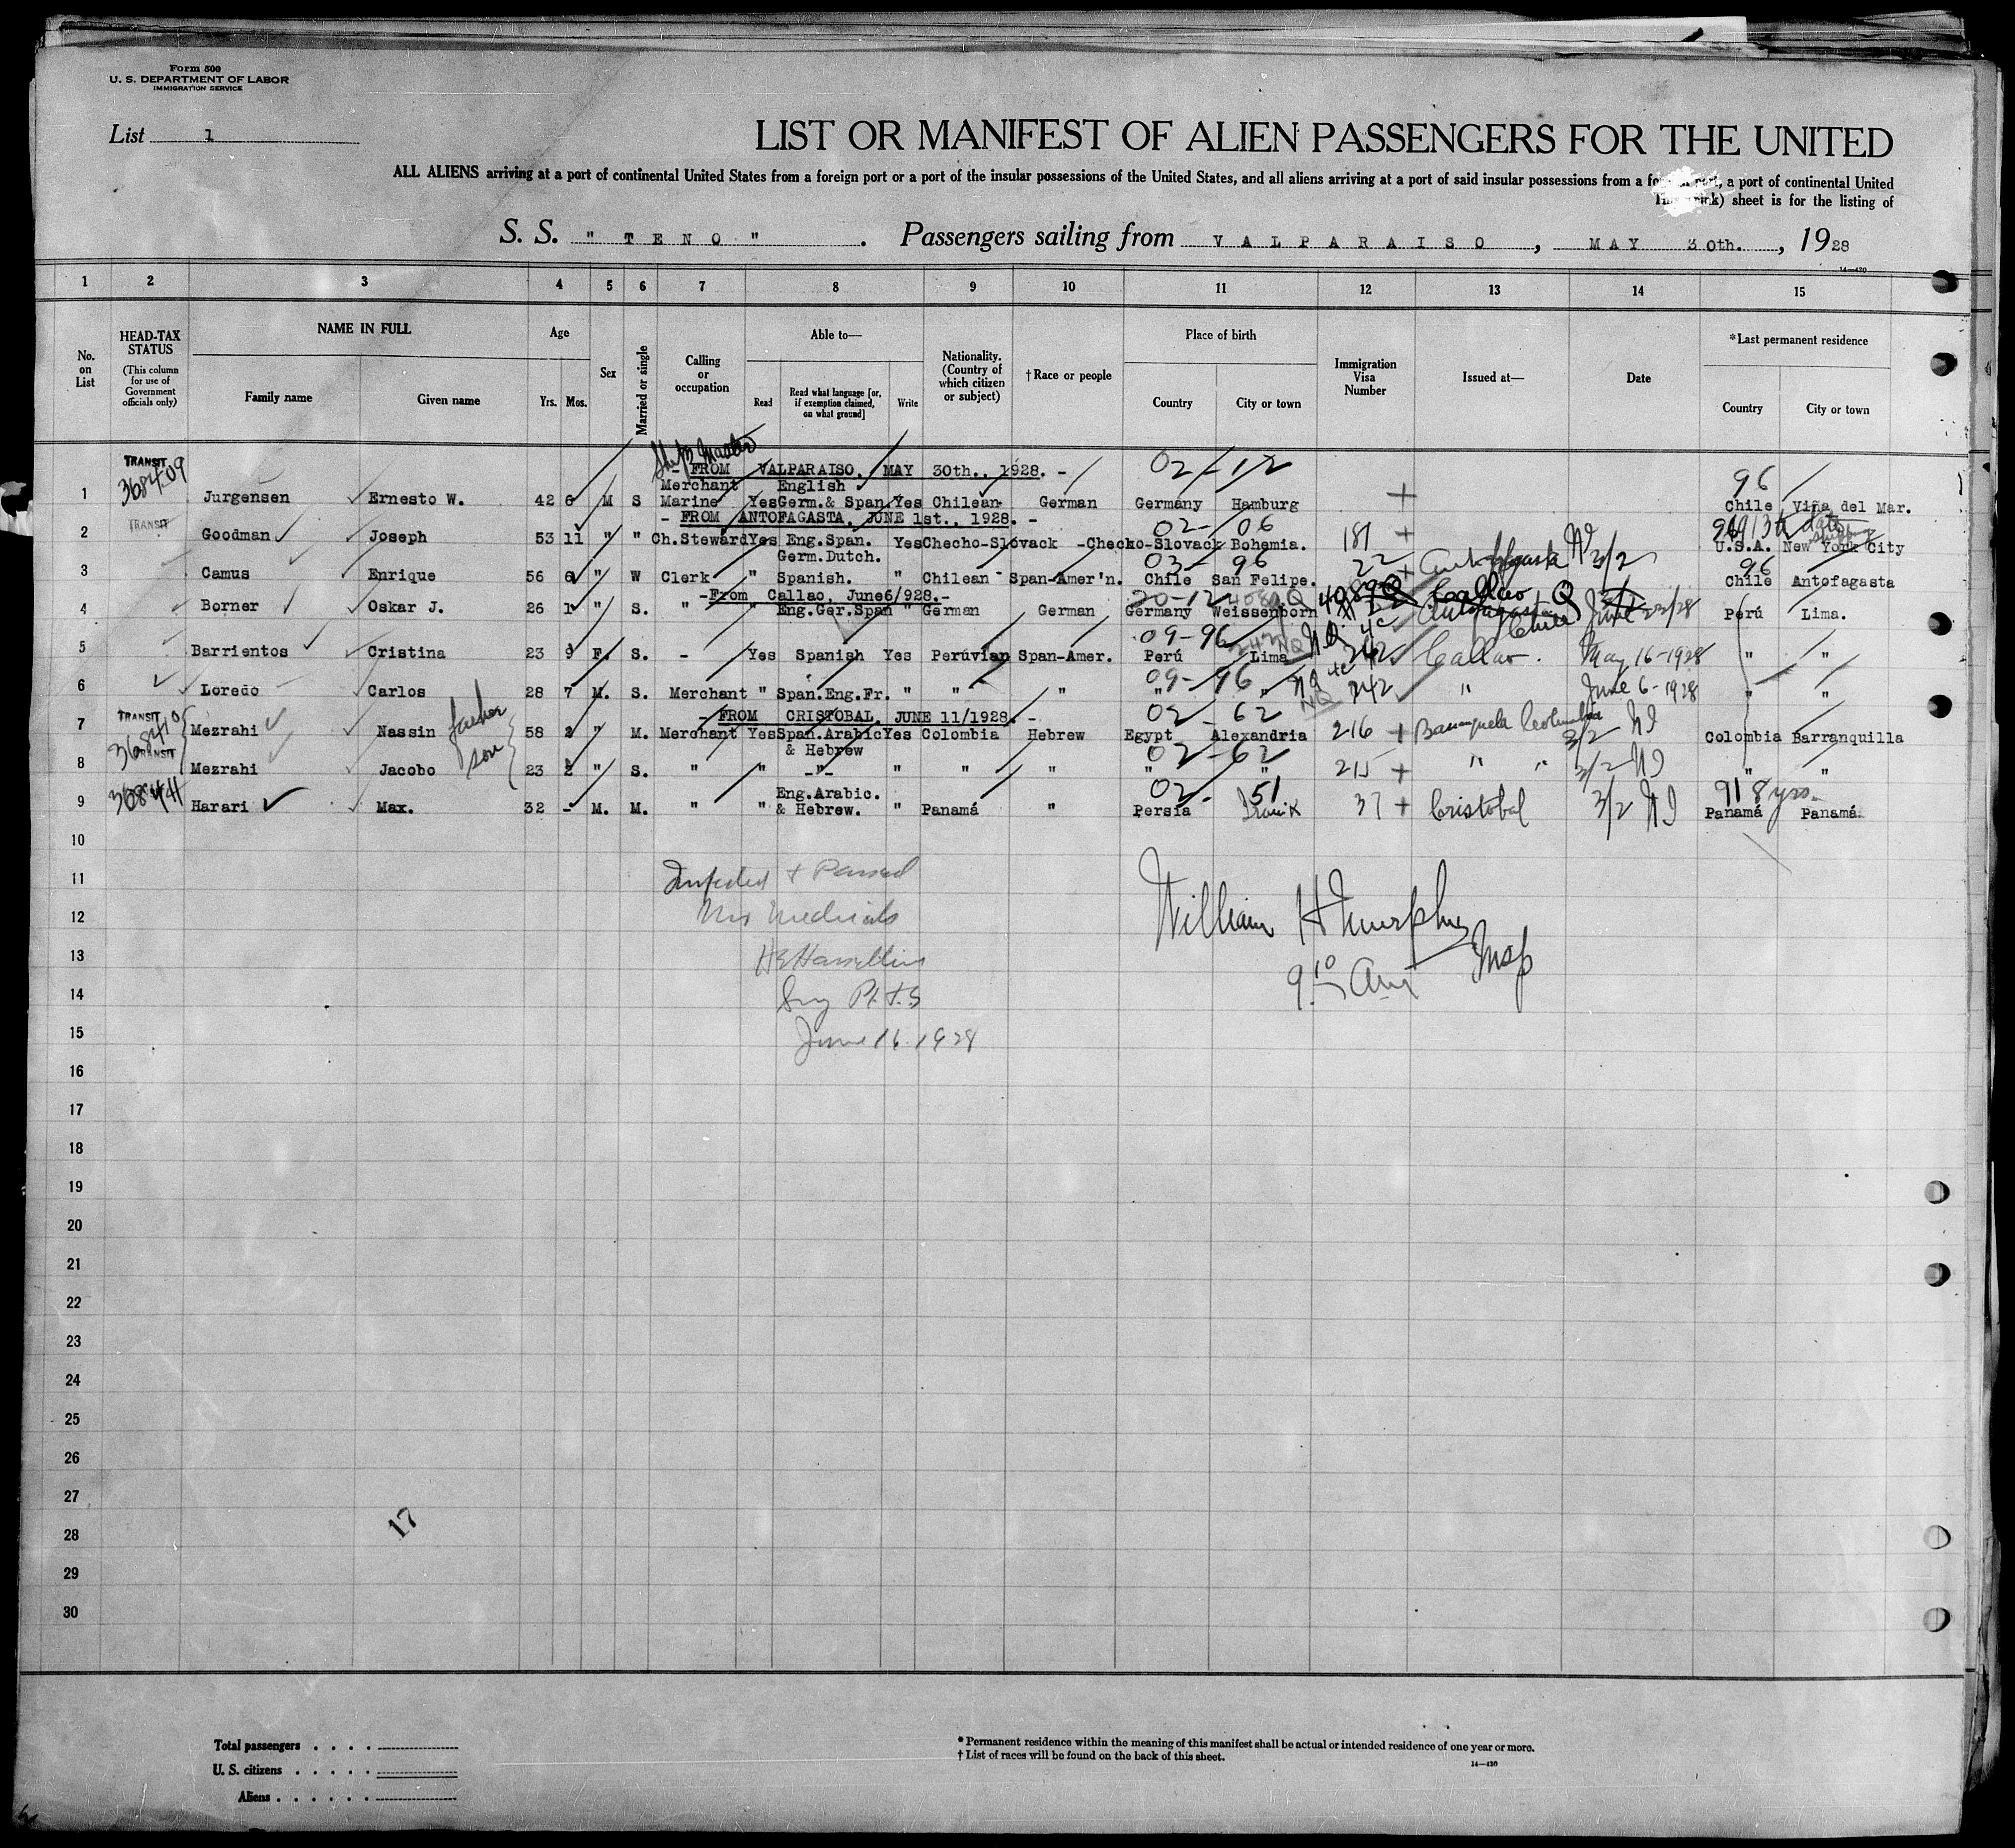 Form 500
U. S. DEPARTMENT OF LABOR
IMMIGRATION SERVICE
List 1
LIST OR MANIFEST OF ALIEN PASSENGERS FOR THE UNITED
ALL ALIENS arriving at a port of continental United States from a foreign port or a port of the insular possessions of the United States, and all aliens arriving at a port of said insular possessions from a port, a port of continental United
sheet is for the listing of
S. S. " TENO " . Passengers sailing from VALPARAISO , MAY 30th. , 1928
14—430
1 2 3 4 5 6 7 8 9 10 11 12 13 14 15
No. on List
HEAD-TAX STATUS
(This column for use of Government officials only)
NAME IN FULL
Family name Given name
Age
Yrs. Mos.
Sex
Married or single
Calling or occupation
Able to—
Read
Read what language [or, if exemption claimed, on what ground]
Write
Nationality. (Country of which citizen or subject)
†Race or people
Place of birth
Country City or town
Immigration Visa Number
Issued at—
Date
*Last permanent residence
Country City or town
Ship Master
- FROM VALPARAISO, MAY 30th., 1928. - 02-12
TRANSIT 368409 96
Merchant English
1 Jurgensen Ernesto W. 42 6 M S Marine Yes Germ.& Span. Yes Chilean German Germany Hamburg + Chile Viña del Mar.
- FROM ANTOFAGASTA, JUNE 1st., 1928. - 02-06
2 TRANSIT Goodman Joseph 53 11 " " Ch.Steward Yes Eng.Span. Yes Checho-Slovack -Checko-Slovack Bohemia. 181 + U.S.A. New York City
Germ.Dutch. 03-96 96
3 Camus Enrique 56 6 " W Clerk " Spanish. " Chilean Span-Amer'n. Chile San Felipe. 22 + Antofagasta 3/2 Chile Antofagasta
-From Callao, June6/928.- 20-12 4089Q Callao Q
4 Borner Oskar J. 26 1 " S. " " Eng.Ger.Span " German German Germany Weissenborn Antofagasta Chile June Perú Lima.
09-96 242 NQ
5 Barrientos Cristina 23 9 F. S. - Yes Spanish Yes Perúvian Span-Amer. Perú Lima Callao. May 16-1928 " "
09-96
6 Loredo Carlos 28 7 M. S. Merchant " Span.Eng.Fr. " " " " " NQ 242 " June 6-1928 " "
- FROM CRISTOBAL, JUNE 11/1928. - 02-62
7 TRANSIT 368410 Mezrahi Nassin father 58 2 " M. Merchant Yes Span.Arabic Yes Colombia Hebrew Egypt Alexandria 216 + 3/2 Colombia Barranquilla
& Hebrew 02-62
8 TRANSIT Mezrahi Jacobo son 23 2 " S. " " -"- " " " " " 215 + " " 3/2 " "
Eng.Arabic. 02-51 91 8 yrs.
9 368441 Harari Max. 32 - M. M. " " & Hebrew. " Panamá " Persia 37 + Cristobal 3/2 Panamá Panamá.
10
11 Inspected + Passed
12 William H Murphy
13 Insp
14 9 10
15 June 16 1928
16
17
18
19
20
21
22
23
24
25
26
27
17
28
29
30
Total passengers . . . .
U. S. citizens . . . . .
Aliens . . . . . .
* Permanent residence within the meaning of this manifest shall be actual or intended residence of one year or more.
† List of races will be found on the back of this sheet.
14—430